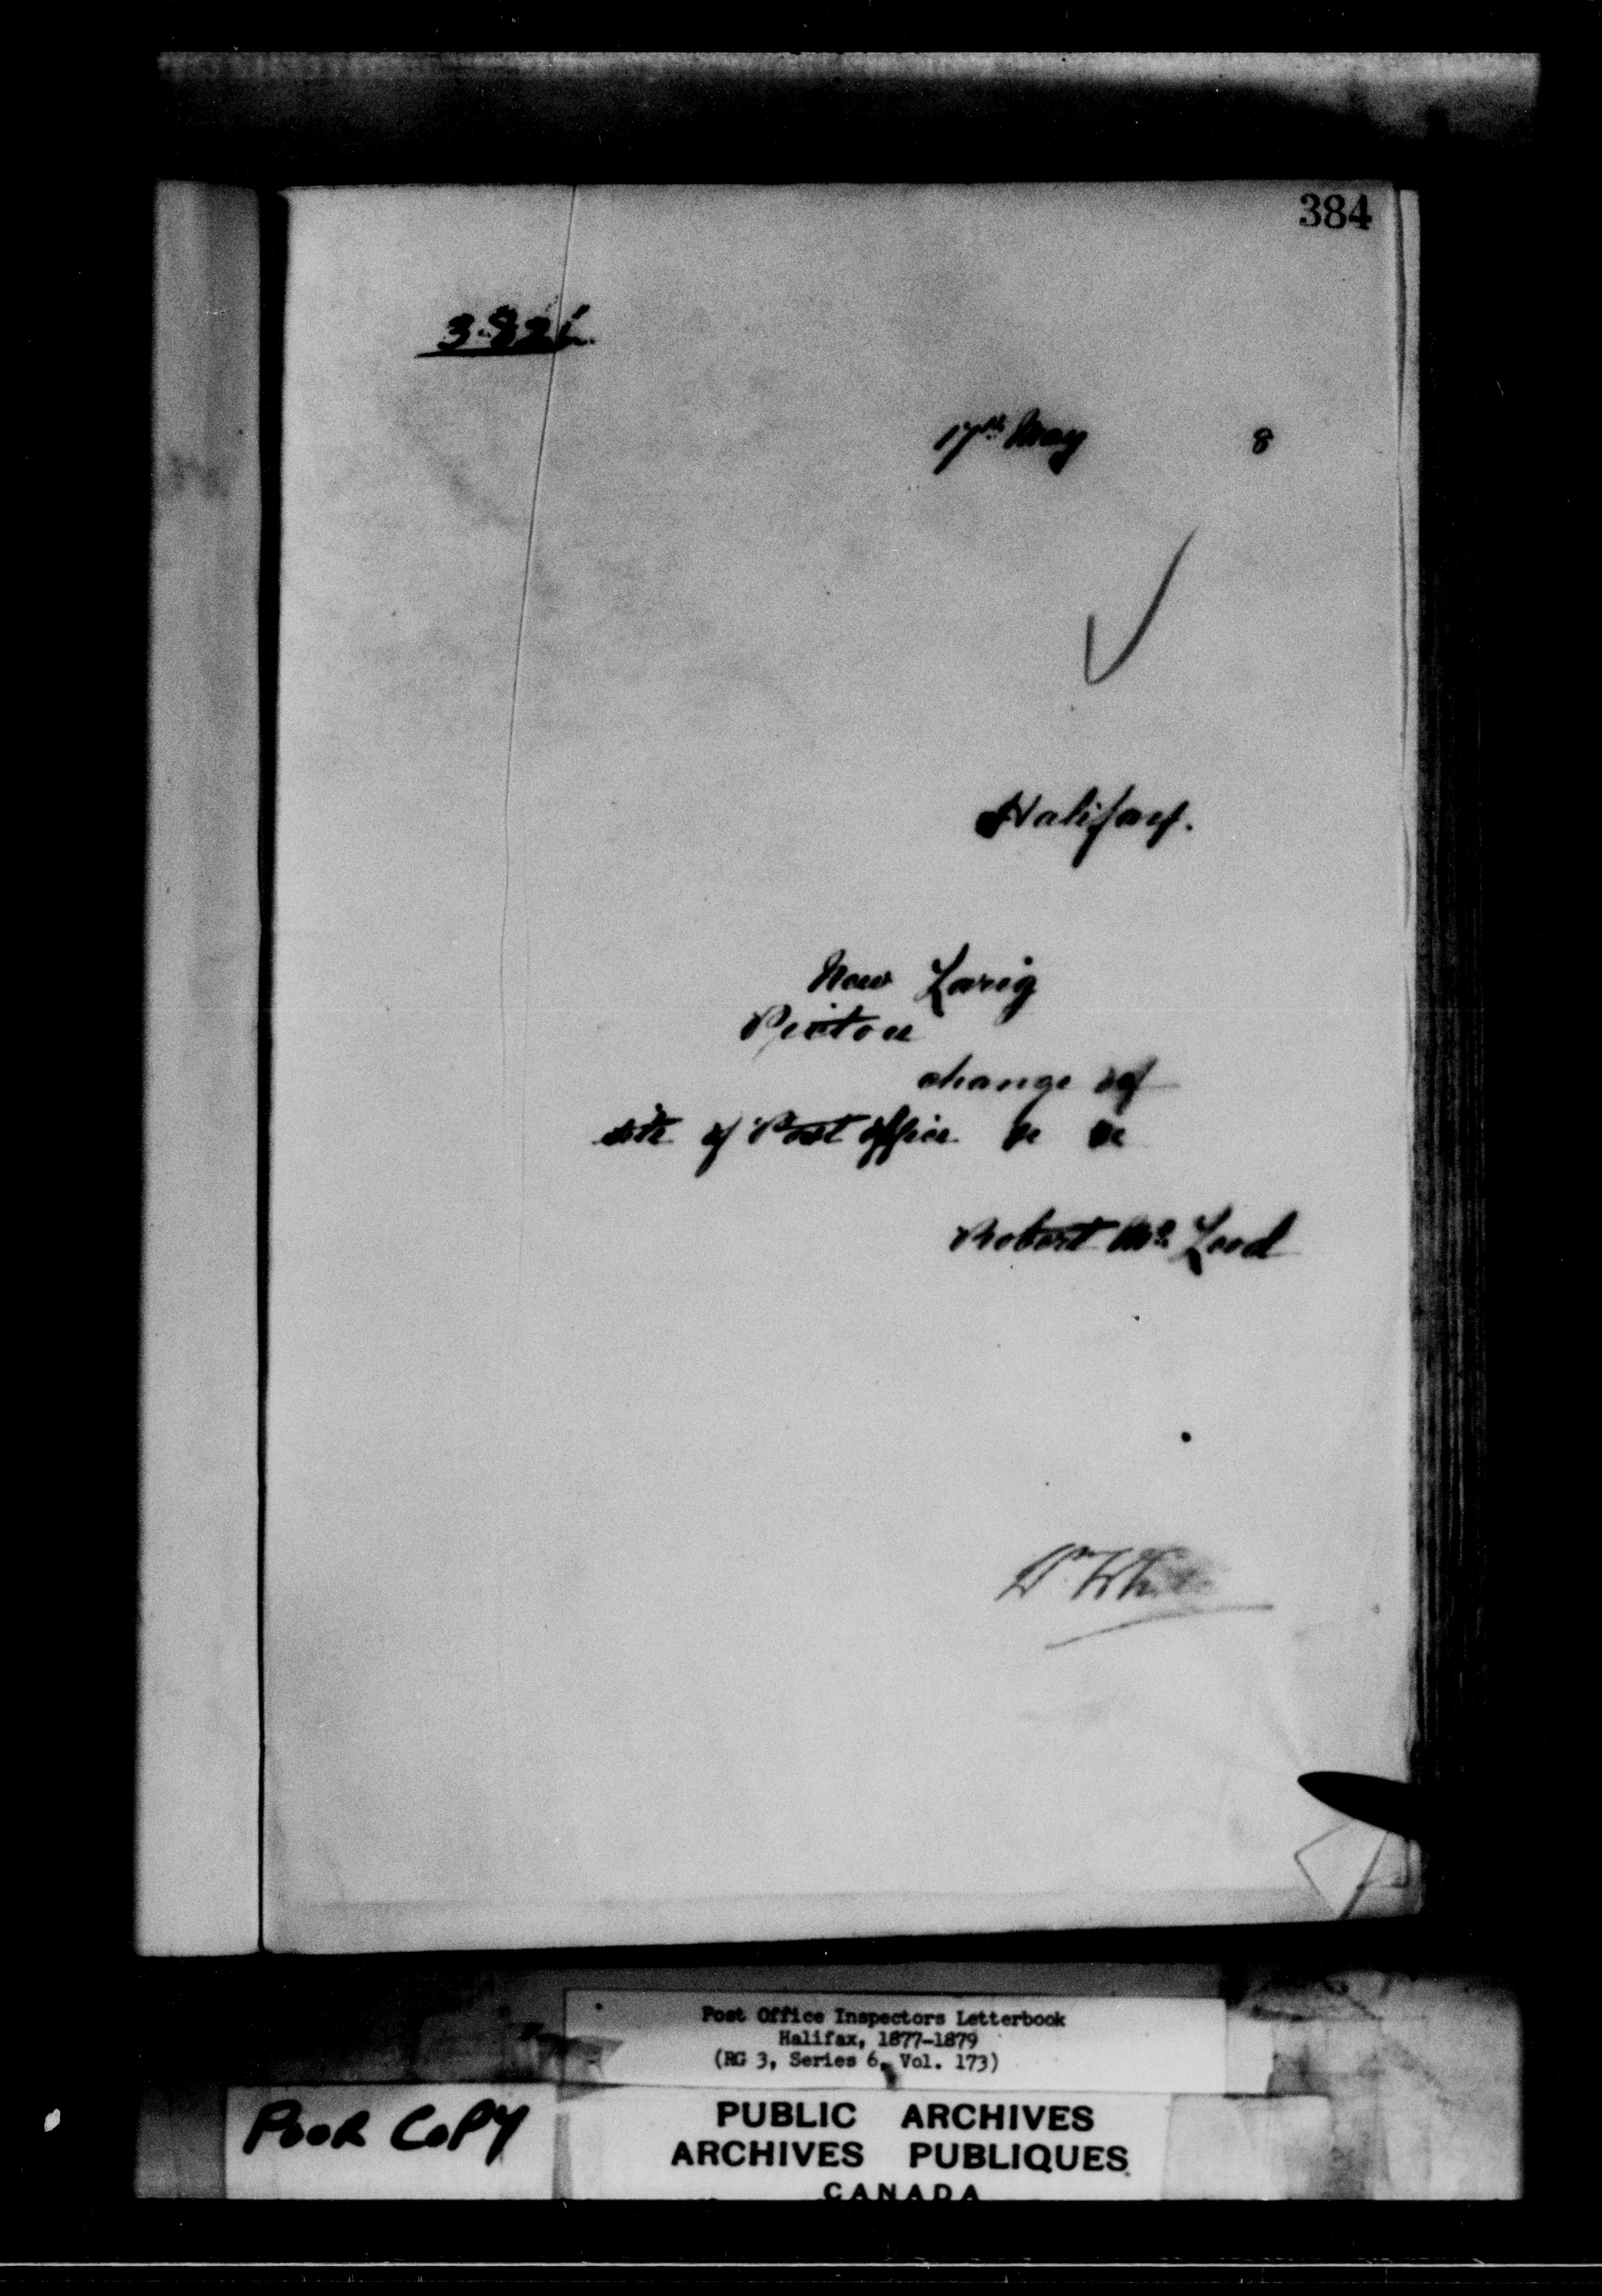 384
17th May 8
Halifax.
New Larig
Pictou
change of
site of Post Office &c &c
Robert Mc Leod
Post Office Inspectors Letterbook
Halifax, 1877-1879
(RG 3, Series 6, Vol. 173)
POOR COPY
PUBLIC ARCHIVES
ARCHIVES PUBLIQUES
CANADA